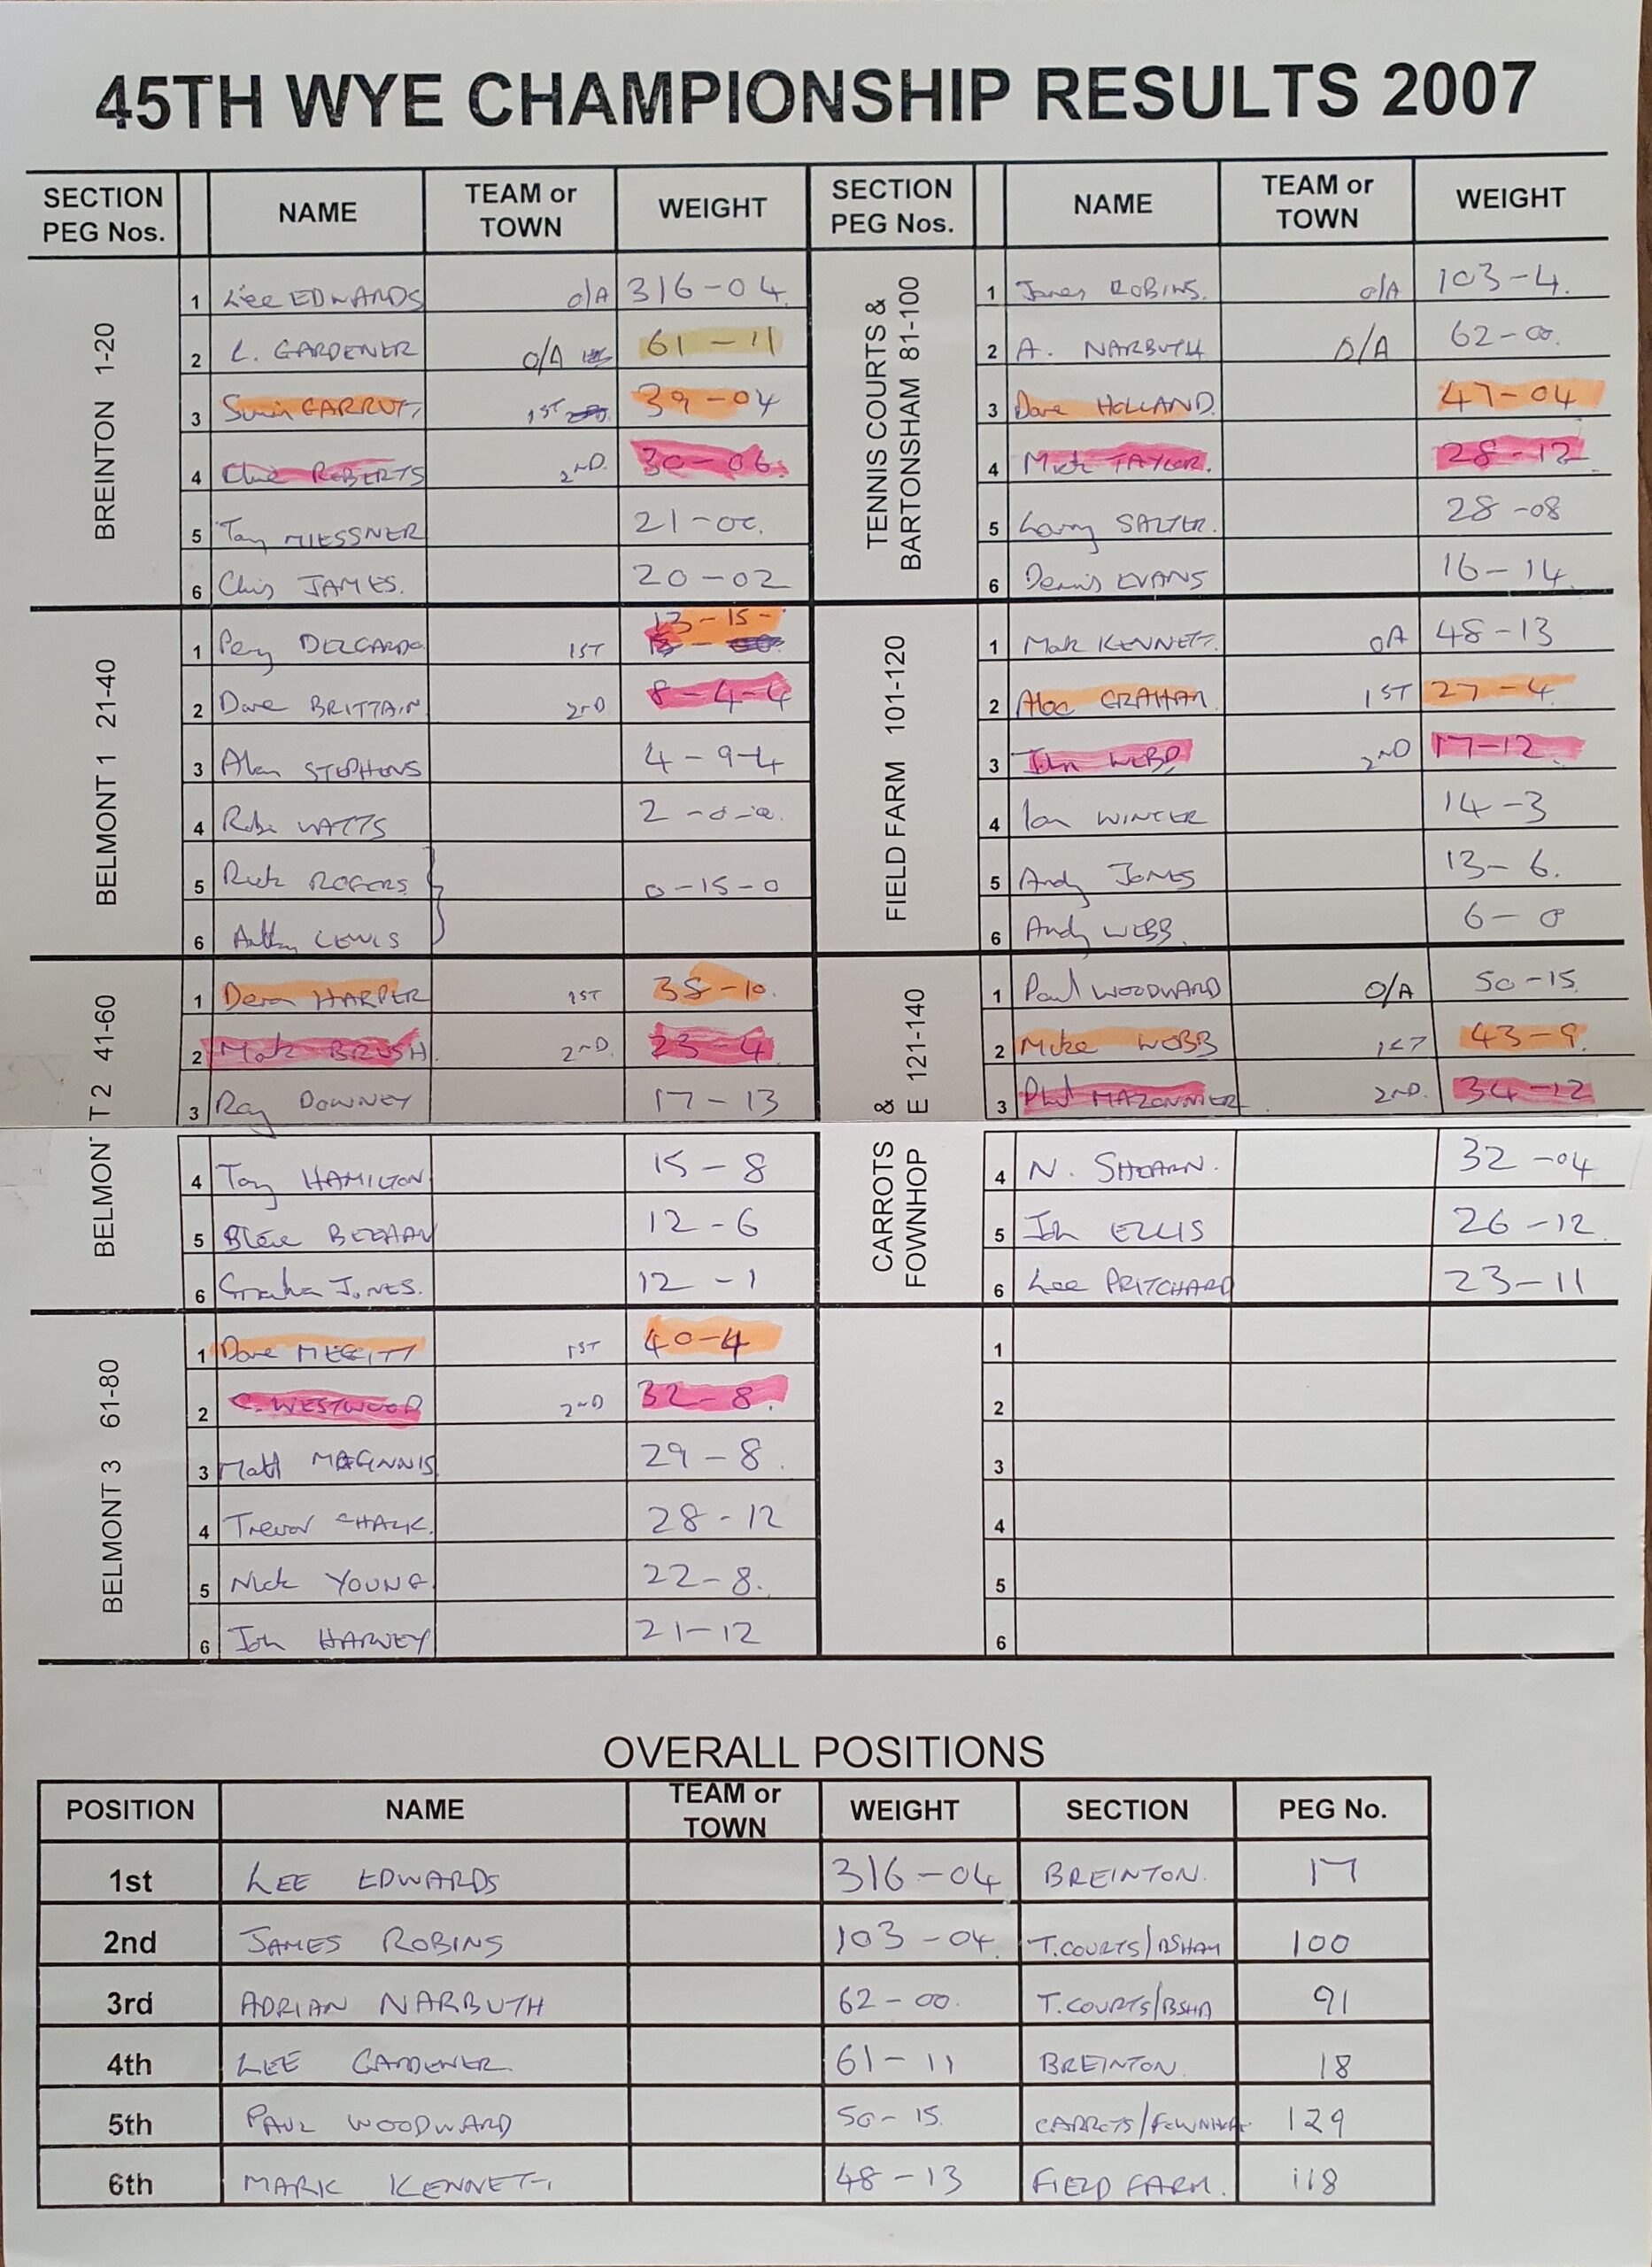 45TH WYE CHAMPIONSHIP RESULTS 2007
SECTION PEG Nos. NAME TEAM or TOWN WEIGHT
BREINTON 1-20
1 Lee EDWARDS O/A 316-04.
2 L. GARDENER O/A 61-11
3 39-04 1ST
4 Clive ROBERTS 2ND. 30-06.
5 Tony MIESSNER 21-00.
6 Chris JAMES. 20-02
BELMONT 1 21-40
1 Percy 1ST 13-15-
2 Dave BRITTAIN 2ND. 8-4-4
3 Alan STEPHENS 4-9-4
4 WATTS 2-0-0.
5 Rick ROGERS 0-15-0
6 LEWIS
BELMONT 2 41-60
1 HARPER 1ST 38-10.
2 Mark BRUSH. 2ND. 23-4
3 Ray DOWNEY 17-13
4 Tony HAMILTON 15-8
5 12-6
6 Graham JONES. 12-1
BELMONT 3 61-80
1 Dave 1ST 40-4
2 C. WESTWOOD 2ND 32-8.
3 Matt MAGINNIS 29-8.
4 Trevor CHALK. 28-12
5 Nick YOUNG 22-8.
6 Joh HARVEY 21-12
SECTION PEG Nos. NAME TEAM or TOWN WEIGHT
TENNIS COURTS & BARTONSHAM 81-100
1 James ROBINS. O/A 103-4.
2 A. NARBUTH O/A 62-00.
3 Dave HOLLAND. 47-04
4 Mick TAYLOR. 28-12.
5 Larry SALTER. 28-08
6 Dennis EVANS 16-14.
FIELD FARM 101-120
1 Mark KENNETT. OA 48-13
2 GRAHAM 1ST 27-4.
3 John WEBB 2ND 17-12.
4 Ian WINTER 14-3
5 Andy JONES 13-6.
6 Andy WEBB. 6-0
CARROTS & FOWNHOPE 121-140
1 Paul WOODWARD O/A 50-15.
2 Mike WEBB 1ST 43-9.
3 Phil 2ND. 34-12
4 N. 32-04
5 ELLIS 26-12.
6 Lee PRITCHARD 23-11
1
2
3
4
5
6
OVERALL POSITIONS
POSITION NAME TEAM or TOWN WEIGHT SECTION PEG No.
1st LEE EDWARDS 316-04 BREINTON. 17
2nd JAMES ROBINS 103-04. T.COURTS/BSHAM 100
3rd ADRIAN NARBUTH 62-00. T.COURTS/BSHA 91
4th LEE GARDENER. 61-11 BREINTON. 18
5th PAUL WOODWARD 50-15. CARROTS/FOWNHOP 129
6th MARK KENNETT. 48-13 FIELD FARM. 118